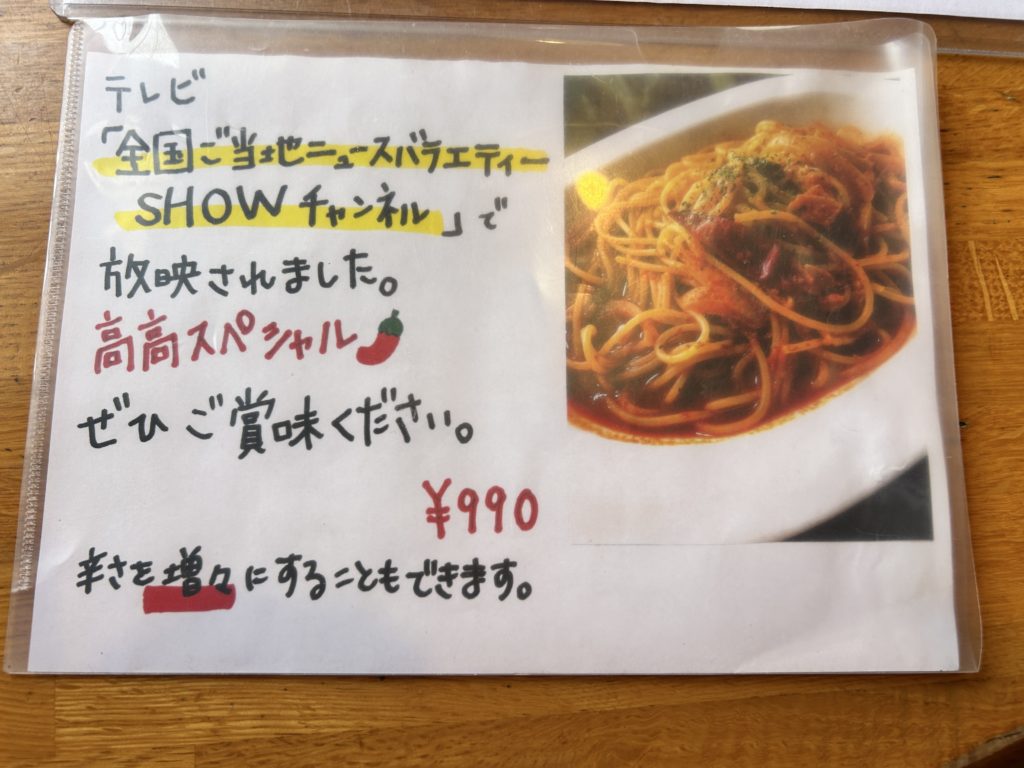 テレビ
「全国ご当地ニュースバラエティー
SHOWチャンネル」で
放映されました。
高高スペシャル
ぜひご賞味ください。
¥990
辛さを増々にすることもできます。